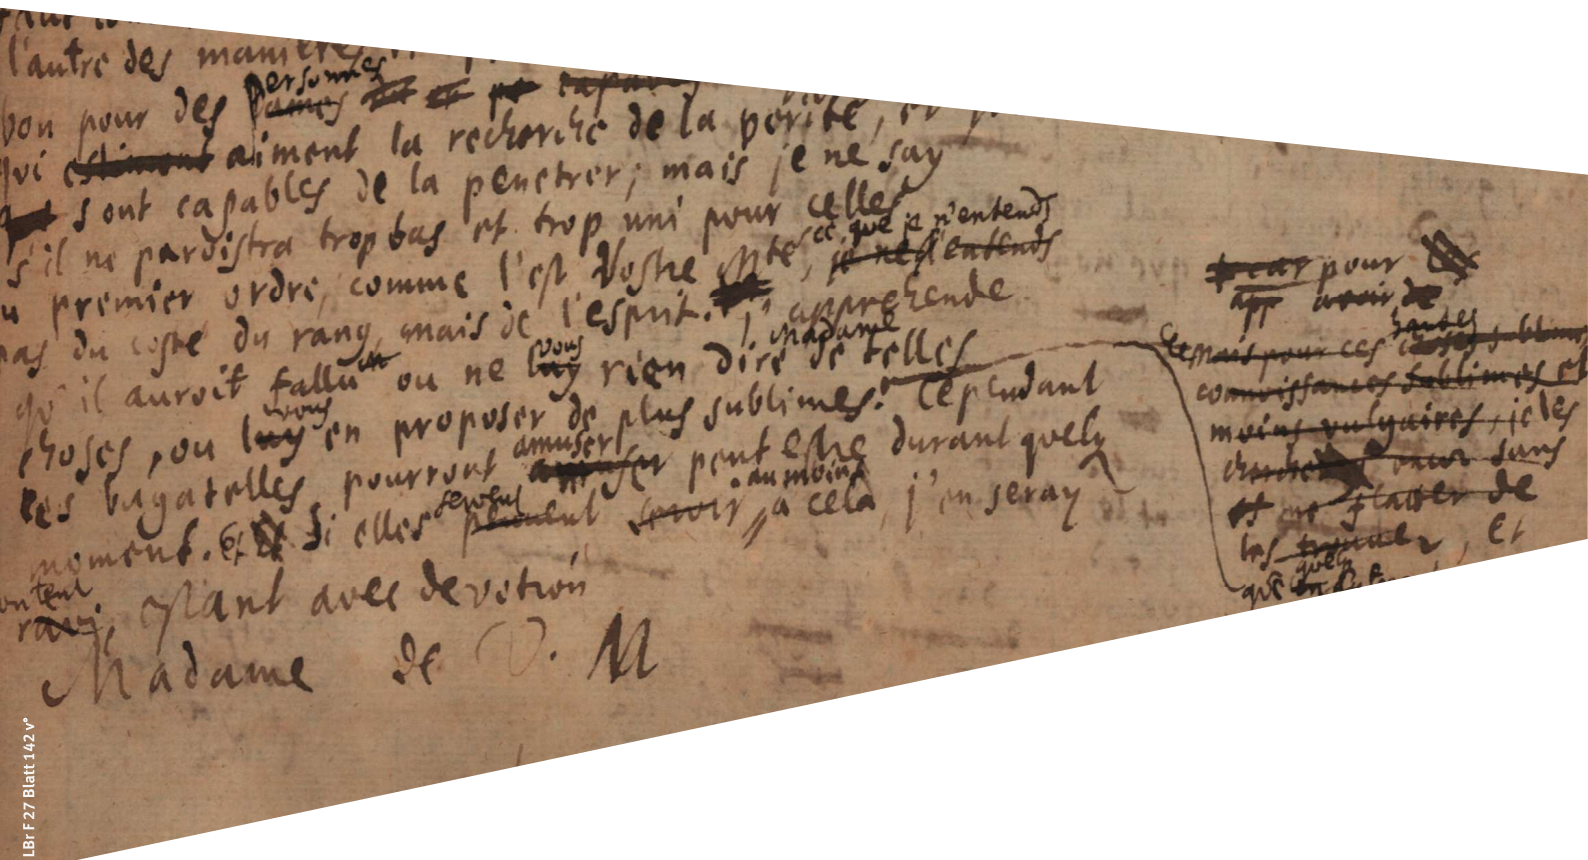 l'autre des manieres
bon pour des personnes dames
qui estiment aiment la recherche de la verité, et
sont capables de la penetrer; mais je ne say
s'il ne paroistra trop bas et trop uni pour celles
du premier ordre, comme l'est Vostre Mté, ce que je n'entends je ne l'entends
pas du costé du rang, mais de l'esprit. j'apprehende
qu'il auroit fallu ou ne vous luy rien dire Madame de telles
choses, ou vous luy en proposer de plus sublimes. Cependant
ces bagatelles pourront amuser amuser peut estre durant quelq
moment. Et Si elles servent peuvent servir au moins à cela, j'en seray
content ravi, estant avec devotion
Madame de V. M
car pour
app avoir de
Mais pour ces hautes choses sublimes
connoissances sublimes et
moins vulgaires, je les
cherche encor sans
et me flatter de
les trouver, Et
que quelq
LBr F 27 Blatt 142 v°